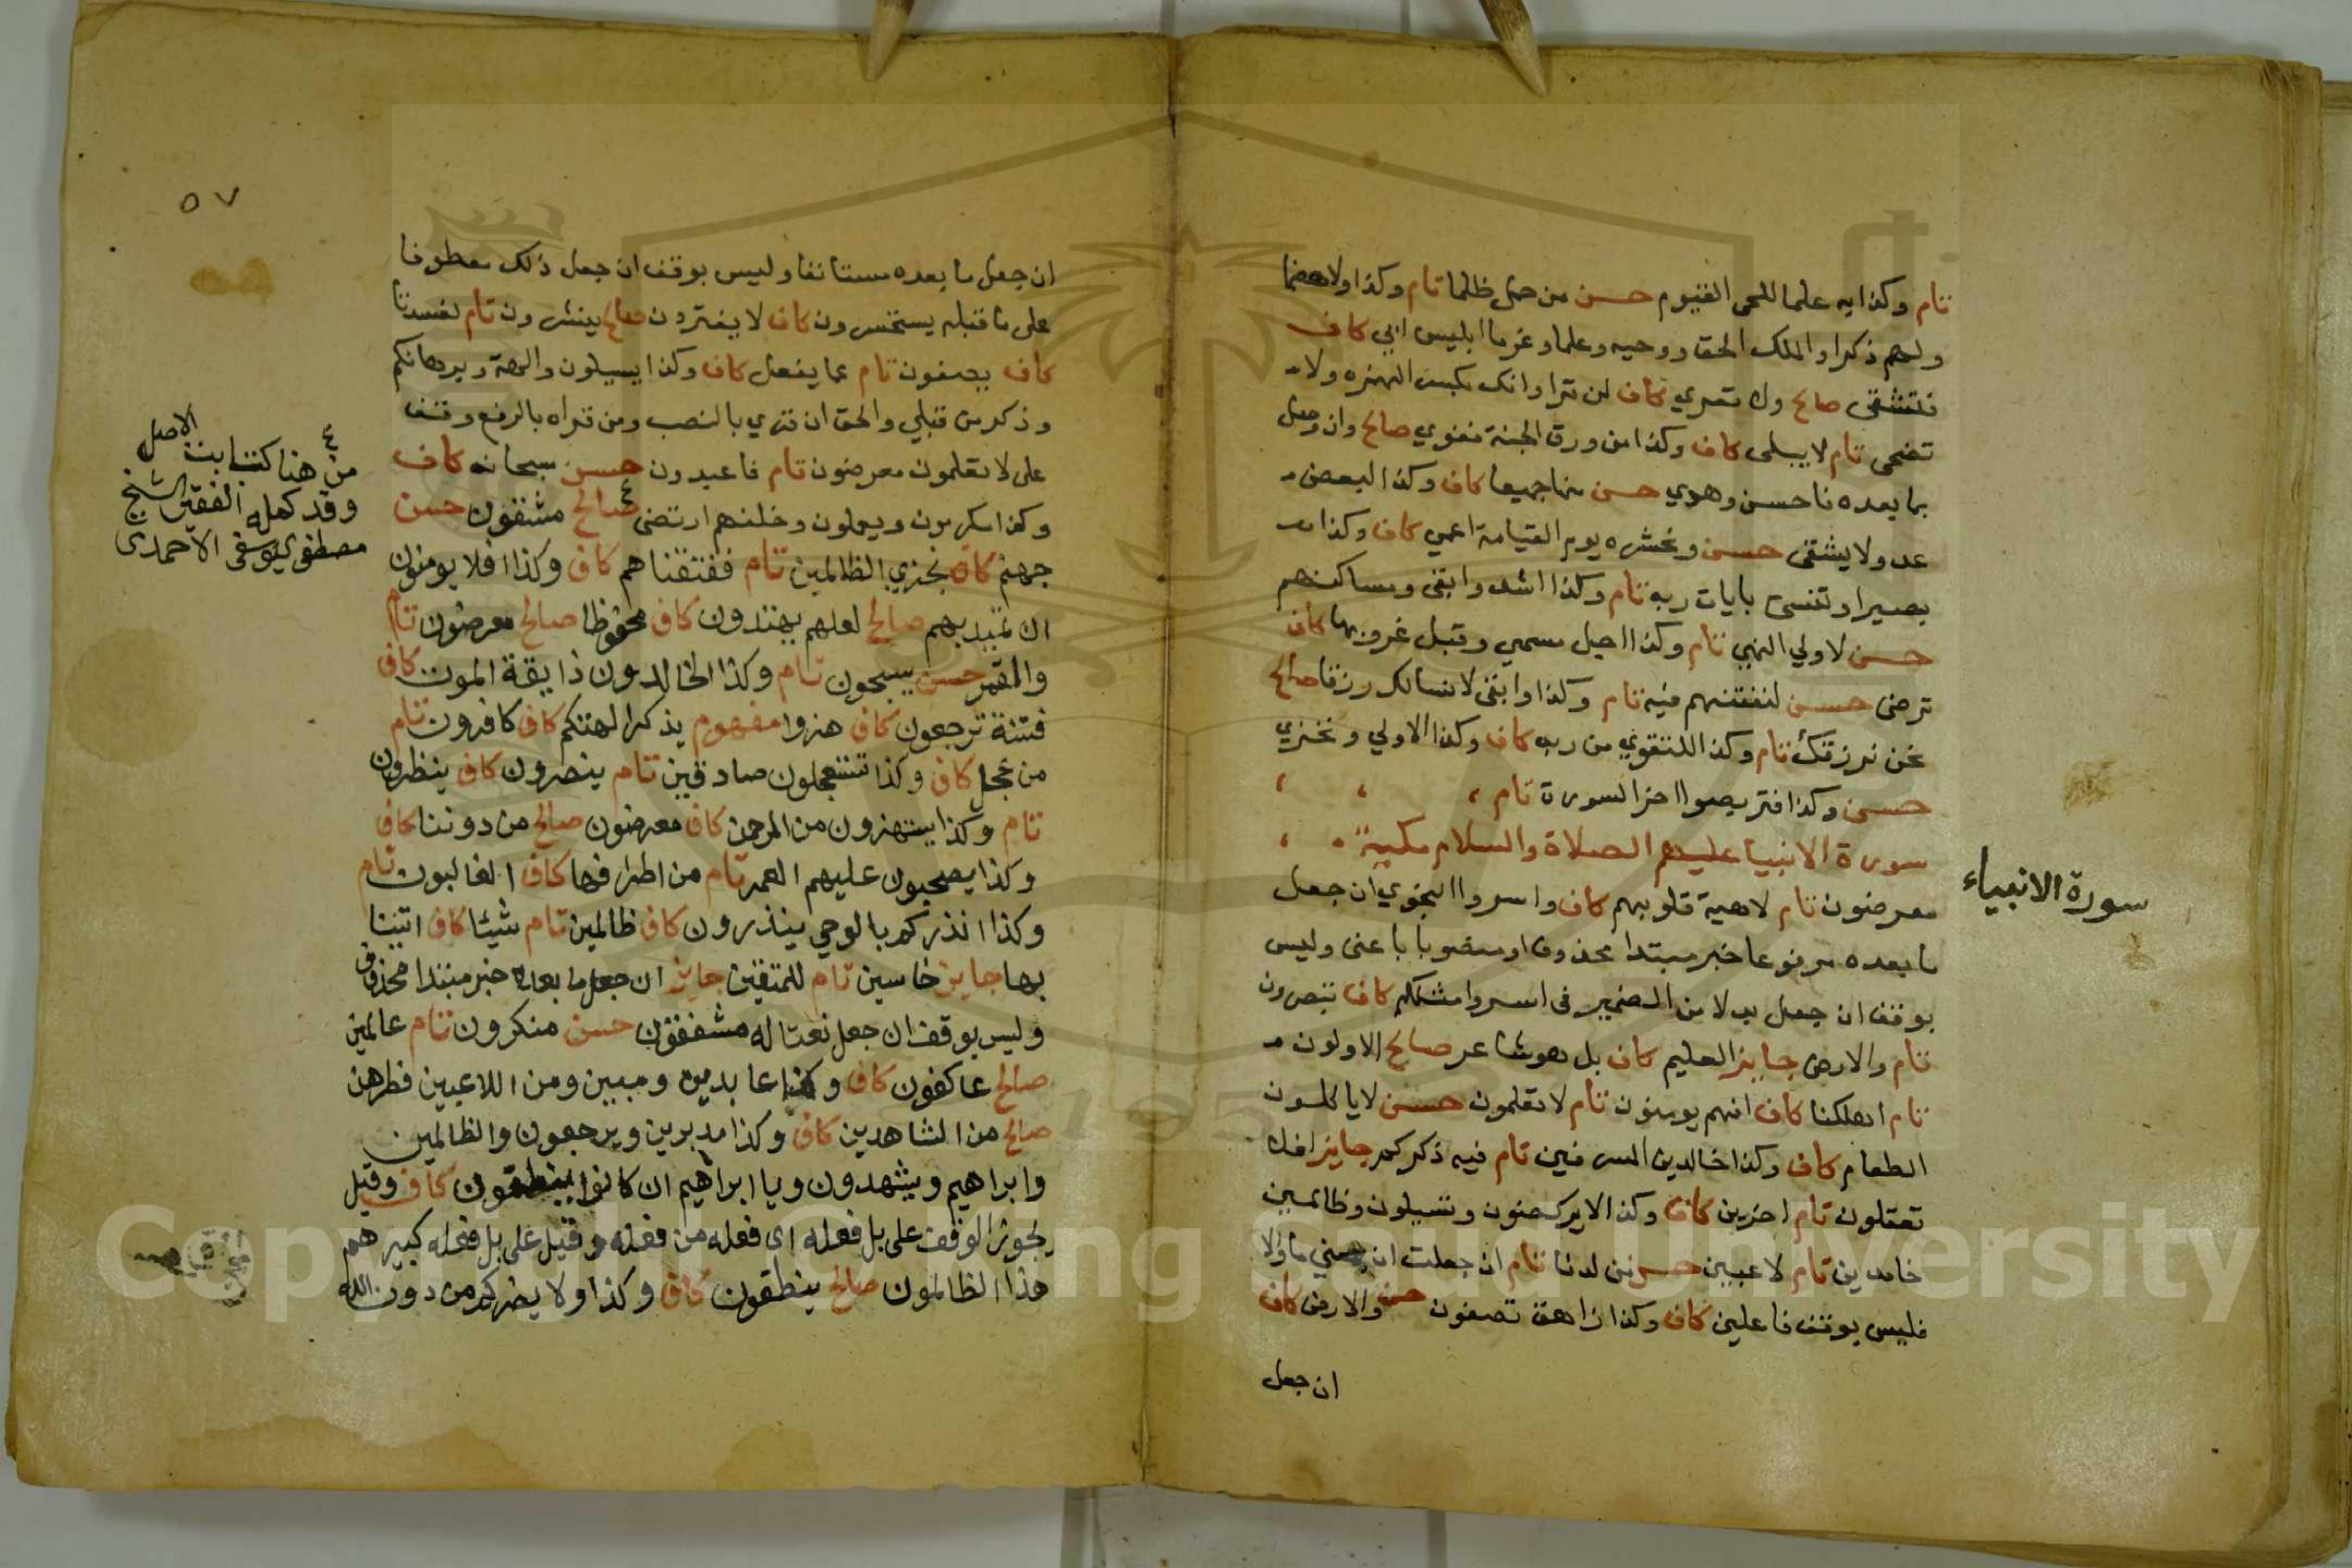 تام وكذا به علما للحي القيوم حسن من حمل ظلما تام وكذا ولا هضما
ولهم ذكرا والملك الحق ووحيه وعلما وعزما ابليس ابي كاف
فتشقى صالح ولا تعري كاف لن قرا وانك بكسر الهمزه ولا
تضحى تام لا يبلى كاف وكذا من ورق الجنة فغوي صالح وان وصل
بما بعده فاحسن وهدي حسن منها جميعا كاف وكذا لبعض
عدو ولا يشقى حسن ونحشره يوم القيامة اعمي كاف وكذا
بصيرا وتنسى بايات ربه تام وكذا اشد وابقى ومساكنهم
حسن لاولي النهي تام وكذا اجل مسمي وقبل غروبها كاف
ترضى حسن لنفتنهم فيه تام وكذا وابقى لا نسالك رزقا صالح
نحن نرزقك تام وكذا للتقوي من ربه كاف وكذا الاولي ونخزي
حسن وكذا فتربصوا اخر السورة تام
سورة الانبيا عليهم الصلاة والسلام مكية
معرضون تام لاهية قلوبهم كاف واسروا النجوي ان جعل
ما بعده مرفوعا خبر مبتدا محذوف او منصوبا باعنى وليس
بوقف ان جعل بدلا من الضمير فى اسروا مثلكم كاف تبصرون
تام والارض جايز العليم كاف بل هو شاعر صالح الاولون
تام اهلكناها كاف افهم يومنون تام لا تعلمون حسن لا ياكلون
الطعام كاف وكذا خالدين المسرفين تام فيه ذكركم جايز افلا
تعقلون تام اخرين كاف وكذا لا يركضون وتسيلون وظالمين
خامدين تام لاعبين حسن من لدنا تام ان جعلت ان بمعني ما والا
فليس بوقف فاعلين كاف وكذا زاهق تصفون حسن والارض كاف
ان جعل
سورة الانبياء
٥٧
ان جعل ما بعده مستانفا وليس بوقف ان جعل ذلك معطوفا
على ما قبله يستحسرون كاف لا يفترون صالح ينشرون تام لفسدتا
كاف يصفون تام عما يفعل كاف وكذا يسيلون والهة وبرهانكم
وذكر من قبلي والحق ان قري بالنصب ومن قراه بالرفع وقف
على لا تعلمون معرضون تام فاعبدون حسن سبحانه كاف
وكذا مكرمون ويعملون وخلفهم ارتضى صالح مشفقون حسن
جهنم كاف نجزي الظالمين تام ففتقناهم كاف وكذا افلا يومنون
ان تميد بهم صالح لعلهم يهتدون كاف محفوظا صالح معرضون تام
والقمر حسن يسبحون تام وكذا الخالدون ذايقة الموت كاف
فتنة ترجعون كاف هزوا مفهوم يذكر الهتكم كاف كافرون تام
من عجل كاف وكذا تستعجلون صادقين تام ينصرون كاف ينظرون
تام وكذا يستهزون من الرحمن كاف معرضون صالح من دوننا كاف
وكذا يصحبون عليهم العمر تام من اطرافها كاف الغالبون تام
وكذا انذركم بالوحي ينذرون كاف ظالمين تام شيئا كاف اتينا
بها جايز حاسبين تام للمتقين جايز ان جعل ما بعده خبر مبتدا محذوف
وليس بوقف ان جعل نعتا له مشفقون حسن منكرون تام عالمين
صالح عاكفون كاف وكذا عابدين ومبين ومن اللاعبين فطرهن
صالح من الشاهدين كاف وكذا مدبرين ويرجعون والظالمين
وابراهيم ويشهدون ويا ابراهيم ان كانوا ينطقون كاف وقيل
يجوز الوقف على بل فعله اى فعله من فعله وقيل على بل فعله كبيرهم
هذا الظالمون صالح ينطقون كاف وكذا ولا يضركم من دون الله
٤
من هنا كتابت الاصل
وقد كمله الفقير الشيخ
مصطفى اليوسفى الاحمدى
Copyright © King Saud University
1957